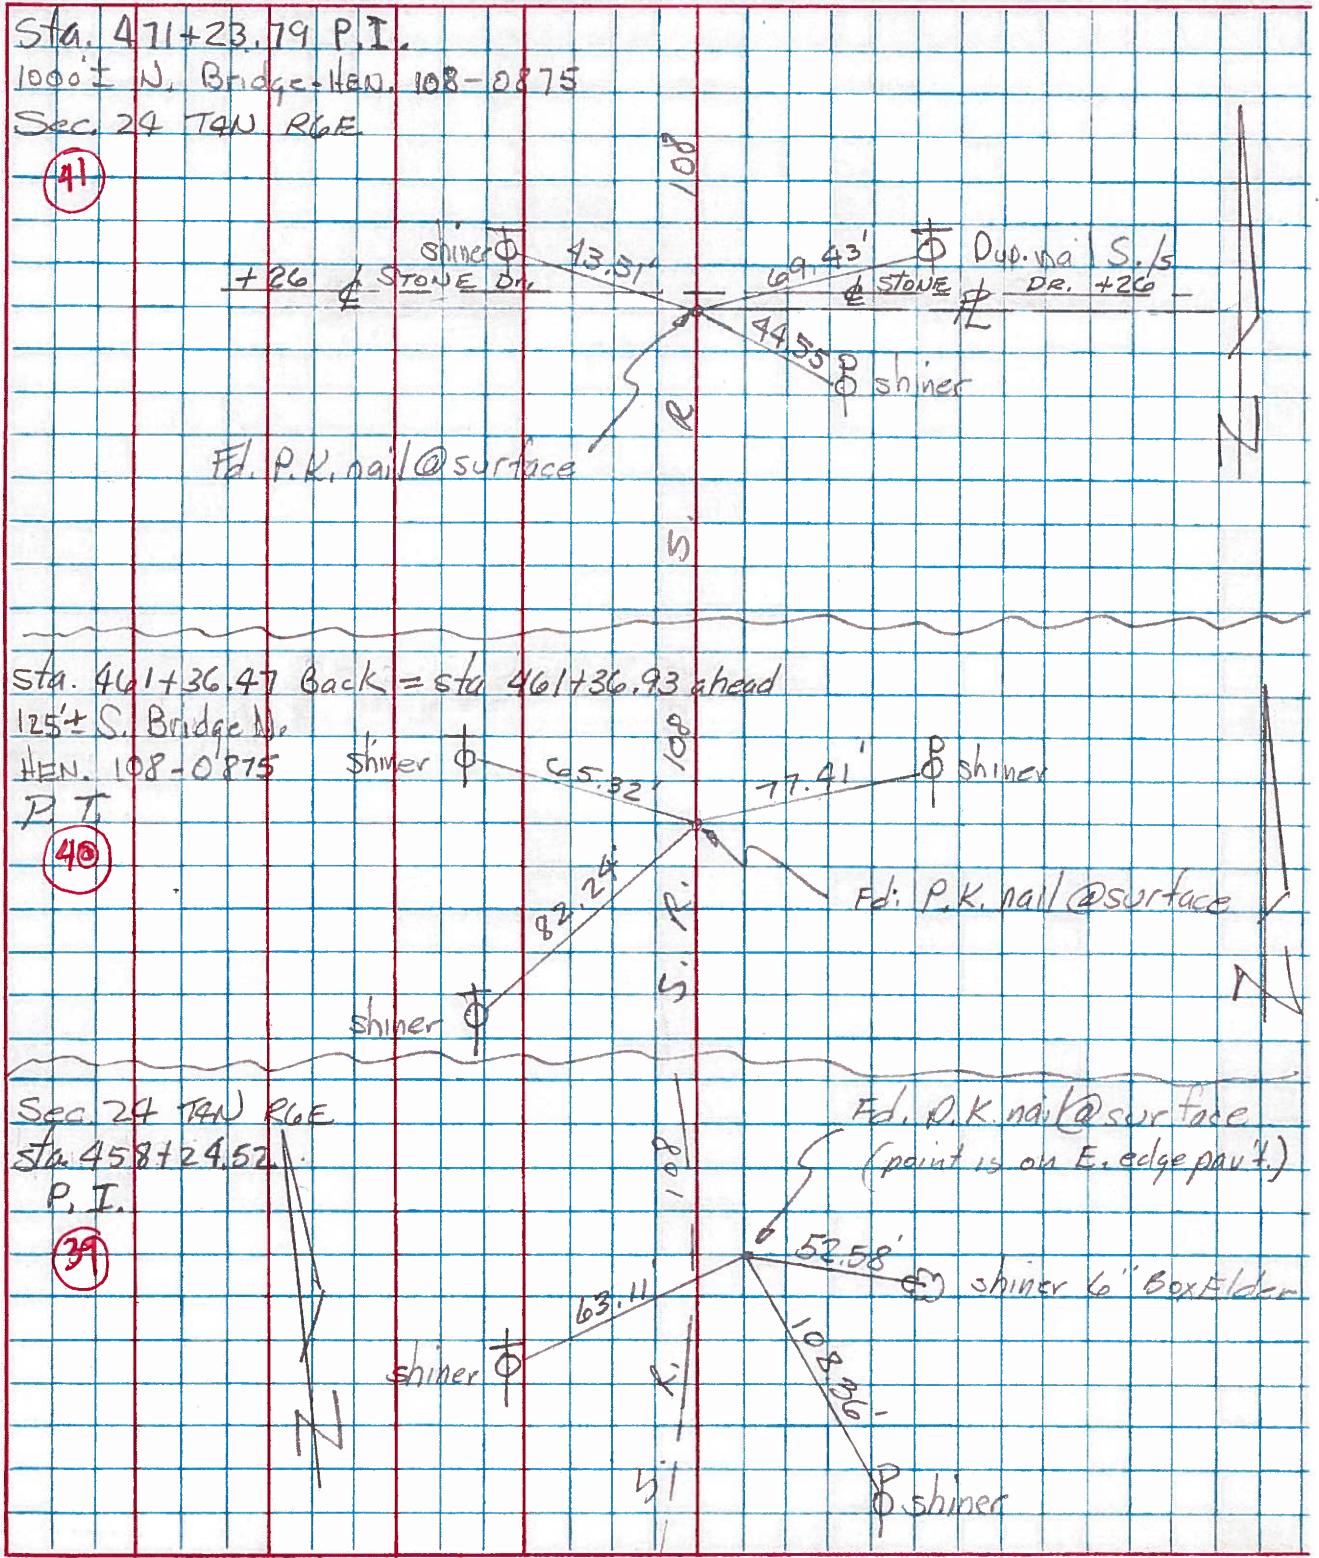 Sta. 471+23.79 P.I.
1000'± N. Bridge-HEN. 108-0875
Sec. 24 T4N R6E
41
108
shiner 43.51' 69.43' Dup. nail S./s
+26 ℄ STONE Dr. ℄ STONE DR. +26
PL
44.55
shiner
R
Fd. P.K. nail @ surface
S.
sta. 461+36.47 Back = sta 461+36.93 ahead
125'± S. Bridge N.
HEN. 108-0875
P.T.
40
108
shiner 65.32' 77.41' shiner
82.24'
R.
Fd. P.K. nail @ surface
S.
N
N
shiner
Sec. 24 T4N R6E
sta. 458+24.52
P.I.
39
108
Fd. P.K. nail @ surface
(point is on E. edge pav't.)
52.58' shiner 6" Box Elder
63.11'
shiner
R.
108.36'
N
S
shiner